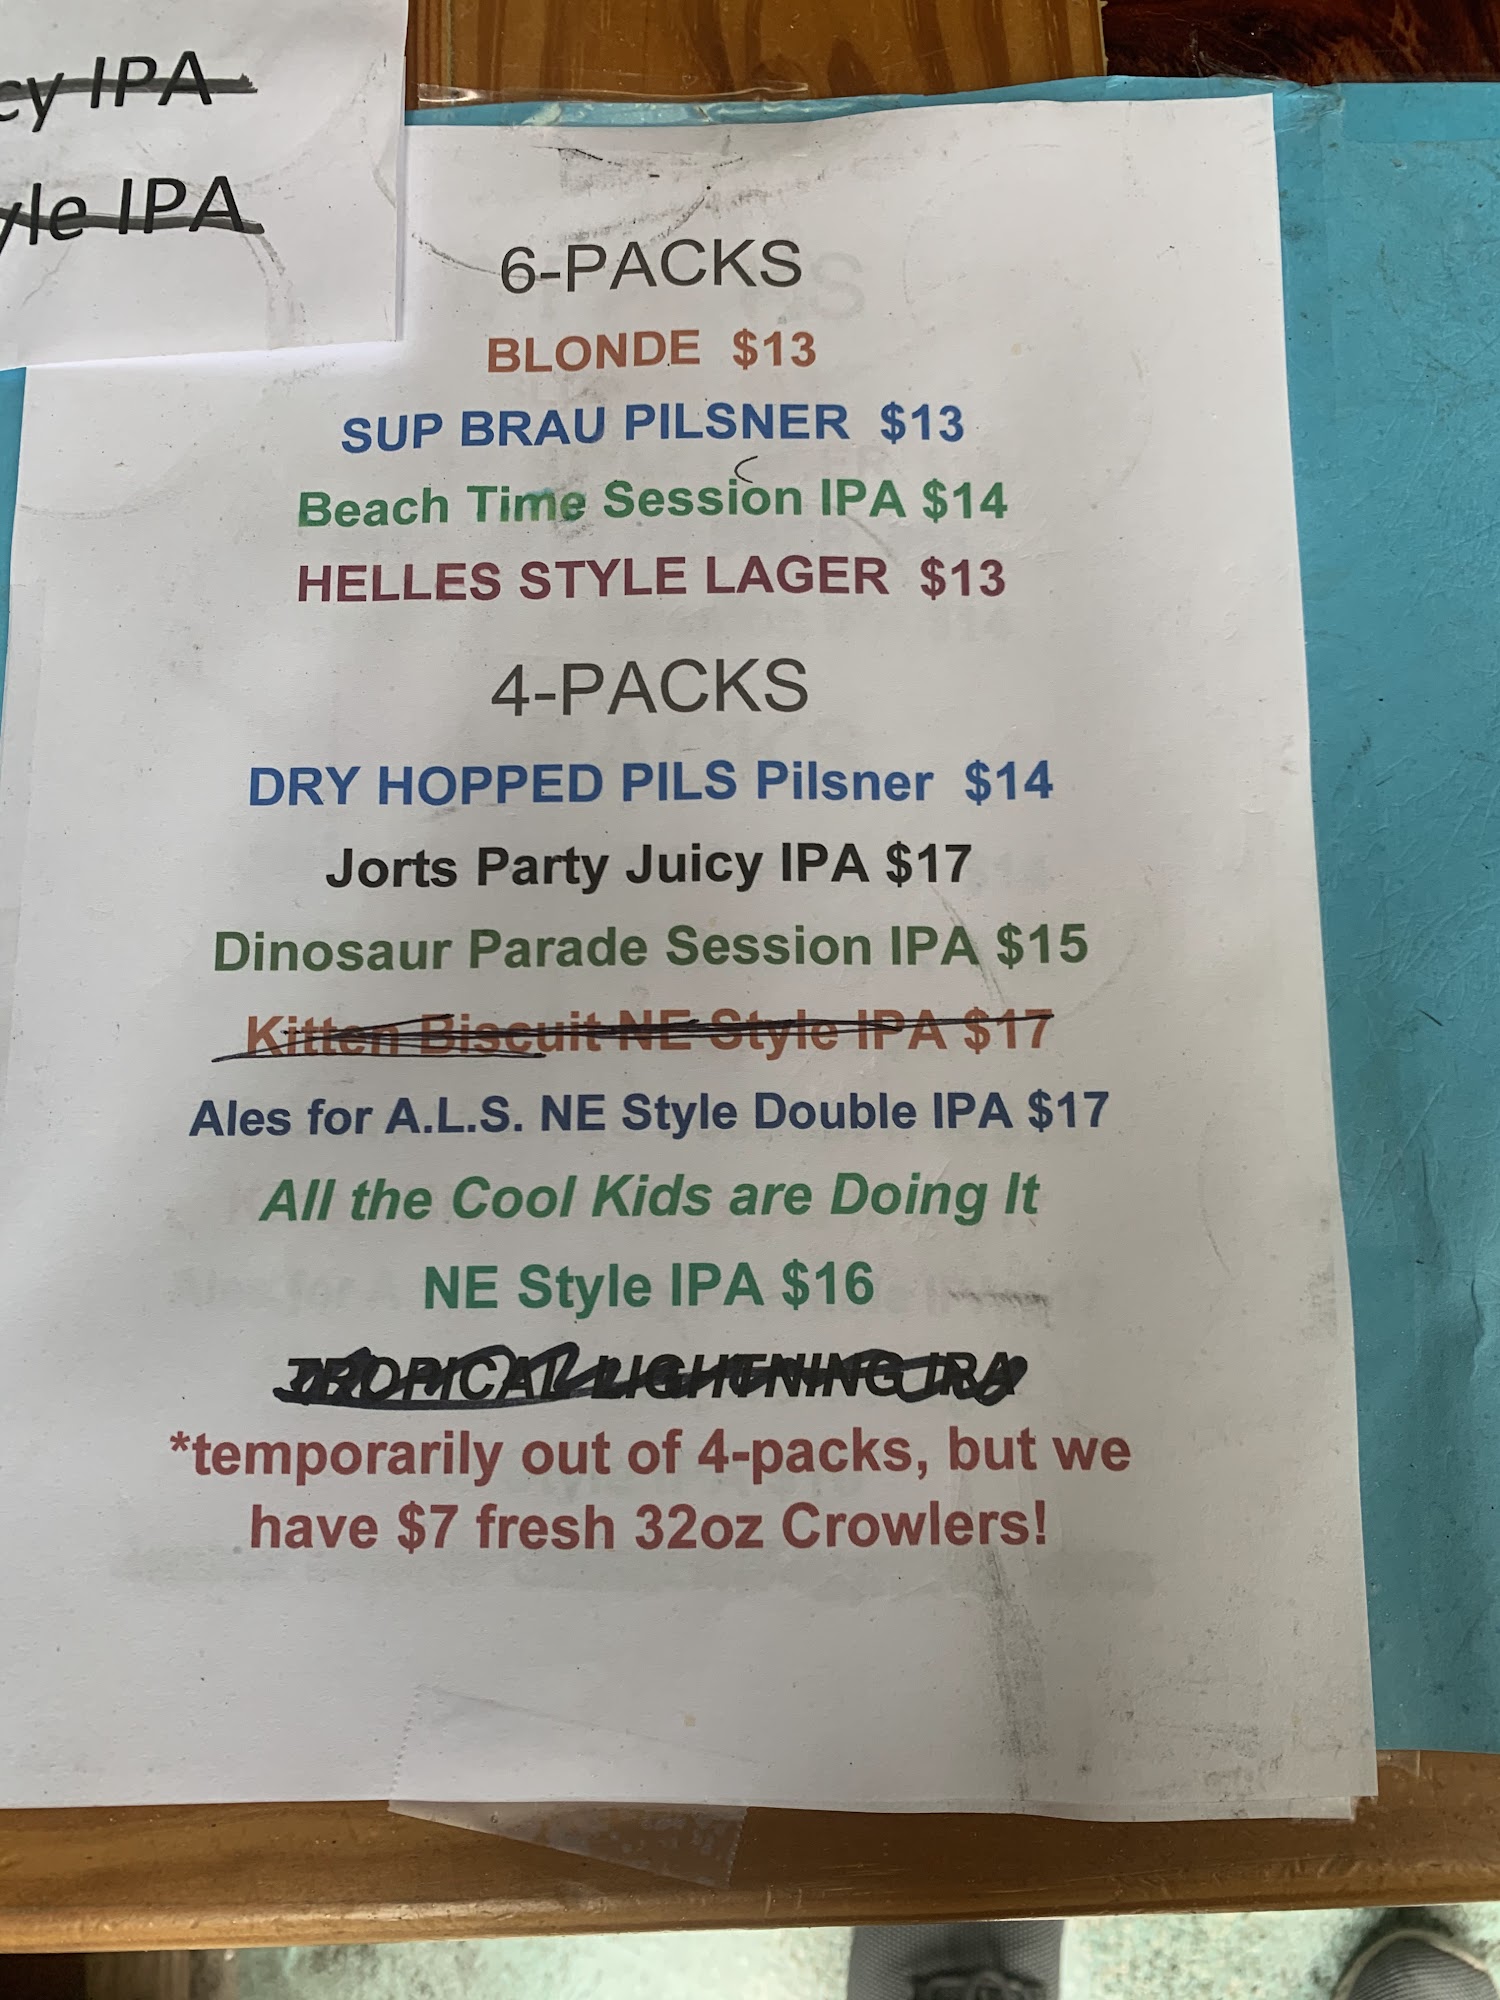 cy IPA
yle IPA
6-PACKS
BLONDE $13
SUP BRAU PILSNER $13
Beach Time Session IPA $14
HELLES STYLE LAGER $13
4-PACKS
DRY HOPPED PILS Pilsner $14
Jorts Party Juicy IPA $17
Dinosaur Parade Session IPA $15
Kitten Biscuit NE Style IPA $17
Ales for A.L.S. NE Style Double IPA $17
All the Cool Kids are Doing It
NE Style IPA $16
TROPICAL LIGHTNING IPA
*temporarily out of 4-packs, but we
have $7 fresh 32oz Crowlers!